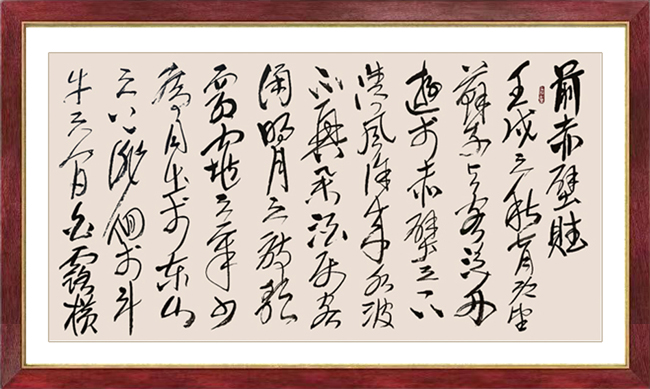 前赤壁賦
壬戌之秋七月既望
蘇子与客泛舟
遊于赤壁之下
清風徐来水波
不興举酒属客
誦明月之詩歌
窈窕之章少
焉月出于东山
之上徘徊于斗
牛之间白露横